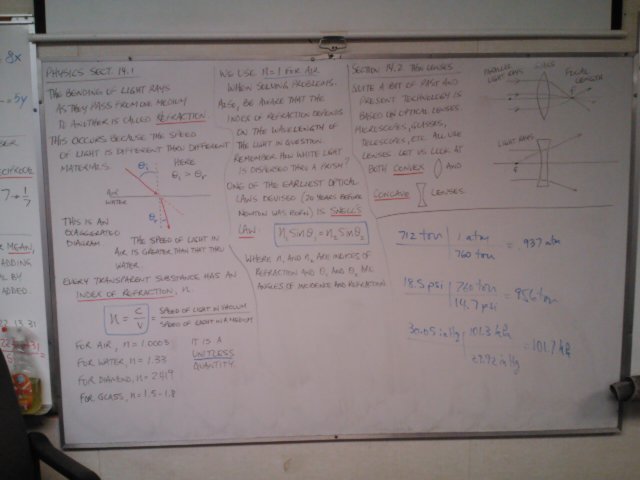 PHYSICS SECT. 14.1
THE BENDING OF LIGHT RAYS
AS THEY PASS FROM ONE MEDIUM
TO ANOTHER IS CALLED REFRACTION.
THIS OCCURS BECAUSE THE SPEED
OF LIGHT IS DIFFERENT THRU DIFFERENT
MATERIALS.
HERE
θi > θr
θi
AIR
WATER
θr
THIS IS AN
EXAGGERATED
DIAGRAM
THE SPEED OF LIGHT IN
AIR IS GREATER THAN THAT THRU
WATER.
EVERY TRANSPARENT SUBSTANCE HAS AN
INDEX OF REFRACTION, n.
n = c/v = SPEED OF LIGHT IN VACUUM / SPEED OF LIGHT IN A MEDIUM
FOR AIR, n = 1.0003
FOR WATER, n = 1.33
FOR DIAMOND, n = 2.419
FOR GLASS, n = 1.5-1.8
IT IS A
UNITLESS
QUANTITY.
WE USE n = 1 FOR AIR
WHEN SOLVING PROBLEMS.
ALSO, BE AWARE THAT THE
INDEX OF REFRACTION DEPENDS
ON THE WAVELENGTH OF
THE LIGHT IN QUESTION.
REMEMBER HOW WHITE LIGHT
IS DISPERSED THRU A PRISM?
ONE OF THE EARLIEST OPTICAL
LAWS DEVISED (20 YEARS BEFORE
NEWTON WAS BORN) IS SNELL'S
LAW: n1 Sin θ1 = n2 Sin θ2
WHERE n1 AND n2 ARE INDICES OF
REFRACTION AND θ1 AND θ2 ARE
ANGLES OF INCIDENCE AND REFRACTION.
SECTION 14.2 THIN LENSES
QUITE A BIT OF PAST AND
PRESENT TECHNOLOGY IS
BASED ON OPTICAL LENSES.
MICROSCOPES, GLASSES,
TELESCOPES, ETC. ALL USE
LENSES. LET US LOOK AT
BOTH CONVEX AND
CONCAVE LENSES.
PARALLEL
LIGHT RAYS
LENS
FOCAL
LENGTH
LIGHT RAYS
712 torr | 1 atm / 760 torr = .937 atm
18.5 psi | 760 torr / 14.7 psi = 956 torr
30.05 in Hg | 101.3 kPa / 29.92 in Hg = 101.7 kPa
= 8x
= 5y
7 → 1/7
MEAN,
ADDING
BY
ADDED